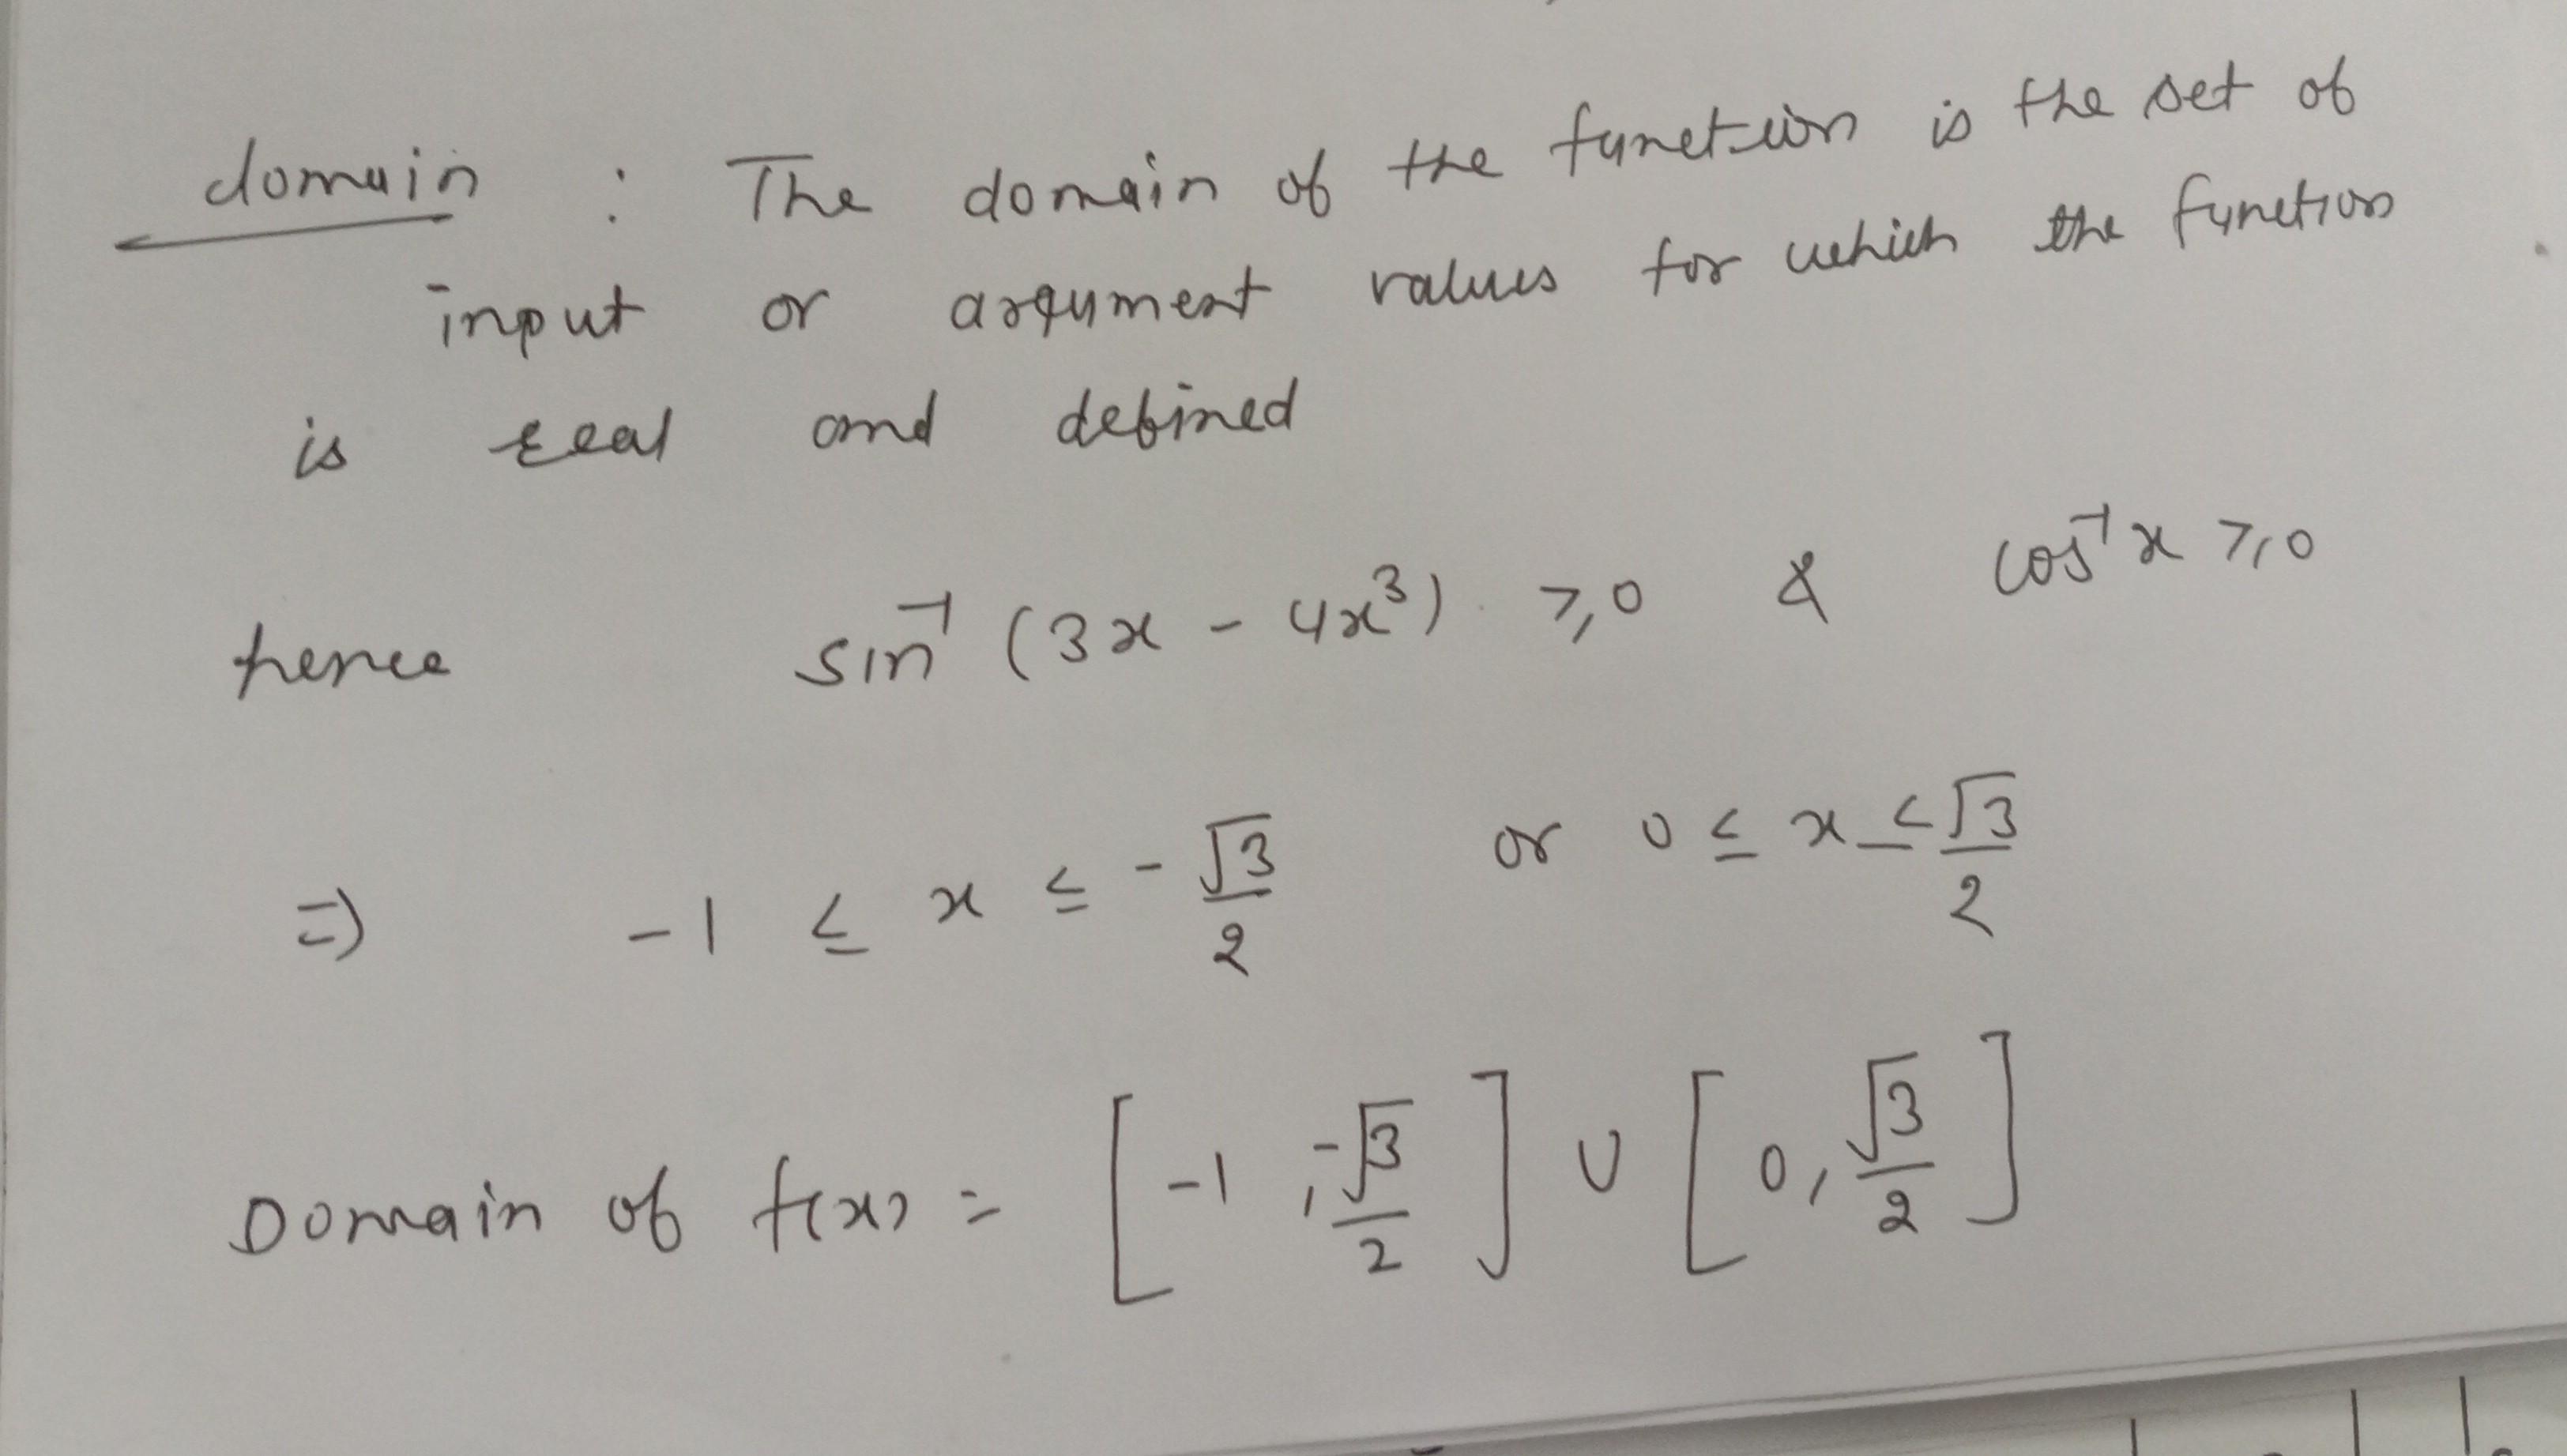 domain : The domain of the function is the set of
input or argument values for which the function
is real and defined
hence sin⁻¹ (3x - 4x³) ≥ 0 & cos⁻¹ x ≥ 0
=> -1 ≤ x ≤ -√3/2 or 0 ≤ x ≤ √3/2
Domain of f(x) = [-1, -√3/2] ∪ [0, √3/2]